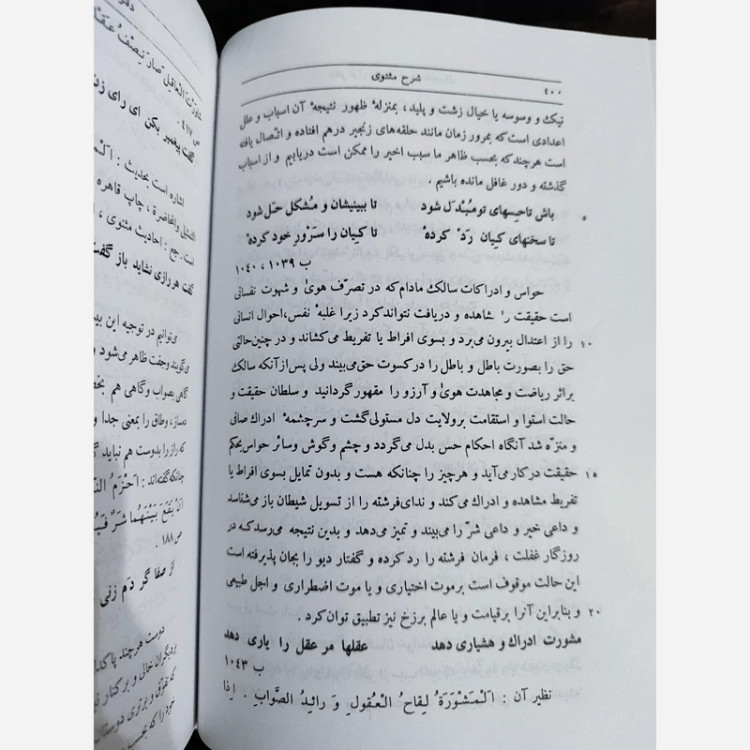 ۴۰۰
شرح مثنوی
نیک و وسوسه یا خیال زشت و پلید ، بمنزلهٔ ظهور نتیجهٔ آن اسباب و علل
اعدادی است که بمرور زمان مانند حلقه‌های زنجیر درهم افتاده و اتّصال یافته
است هرچند که بحسب ظاهر ما سبب اخیر را ممکن است دریابیم و از اسباب
گذشته و دور غافل مانده باشیم .
باش تا حسهای تو مُبْدَل شود تا ببینیشان و مُشکل حَل شود
۵
تا سخنهای کیان رَدّ کردهٔ تا کیان را سَرْوَرِ خود کردهٔ
ب ۱۰۳۹ ، ۱۰۴۰
حواس و ادراکات سالک مادام که در تصرّف هویٰ و شهوت نفسانی
است حقیقت را مشاهده و دریافت نتواند کرد زیرا غلبهٔ نفس، احوال انسانی
را از اعتدال بیرون می‌برد و بسوی افراط یا تفریط می‌کشاند و در چنین حالتی
۱۰
حق را بصورت باطل و باطل را در کسوت حق می‌بیند ولی پس از آنکه سالک
براثر ریاضت و مجاهدت هویٰ و آرزو را مقهور گردانید و سلطان حقیقت و
حالت استوا و استقامت برولایت دل مستولی گشت و سرچشمهٔ ادراک صافی
و منزّه شد آنگاه احکام حس بدل می‌گردد و چشم و گوش و سائر حواس بحکم
حقیقت در کار می‌آید و هرچیز را چنانکه هست و بدون تمایل بسوی افراط یا
۱۵
تفریط مشاهده و ادراک می‌کند و ندای فرشته را از تسویل شیطان باز می‌شناسد
و داعی خیر و داعی شرّ را می‌بیند و تمیز می‌دهد و بدین نتیجه می‌رسد که در
روزگار غفلت، فرمان فرشته را رد کرده و گفتار دیو را بجان پذیرفته است
این حالت موقوف است برموت اختیاری و یا موت اضطراری و اجل طبیعی
و بنابراین آنرا برقیامت و یا عالم برزخ نیز تطبیق توان کرد .
۲۰
مشورت ادراك و هشیاری دهد عقلها مر عقل را یاری دهد
ب ۱۰۴۳
نظیر آن : اَلْمَشْوَرَةُ لِقاحُ الْعُقولِ وَ رائِدُ الصَّوابِ . اِذا
شاوَرْتَ الْعاقِلَ صارَ نِصْفُ عَقْ
ص ۴۱۷ .
گفت پیغمبر بکن ای رای زن
اشاره است بحدیث : اَلْمُ
التمثیل والمحاضرة ، چاپ قاهره
است. جع : احادیث مثنوی ،
گفت هر رازی نشاید باز گفت
می‌توانیم در توجیه این بی
می‌گویند وجفت ظاهر می‌شود و
گاهی بصواب وگاهی هم بخط
دمساز، وطاق را بمعنی جدا و
که راز را بدوست هم نباید گ
چنانکه گفته‌اند : اَحْزَمُ الن
ص ۱۸۸ .
از صفا گر دم زنی
دوست هرچند پاکدل